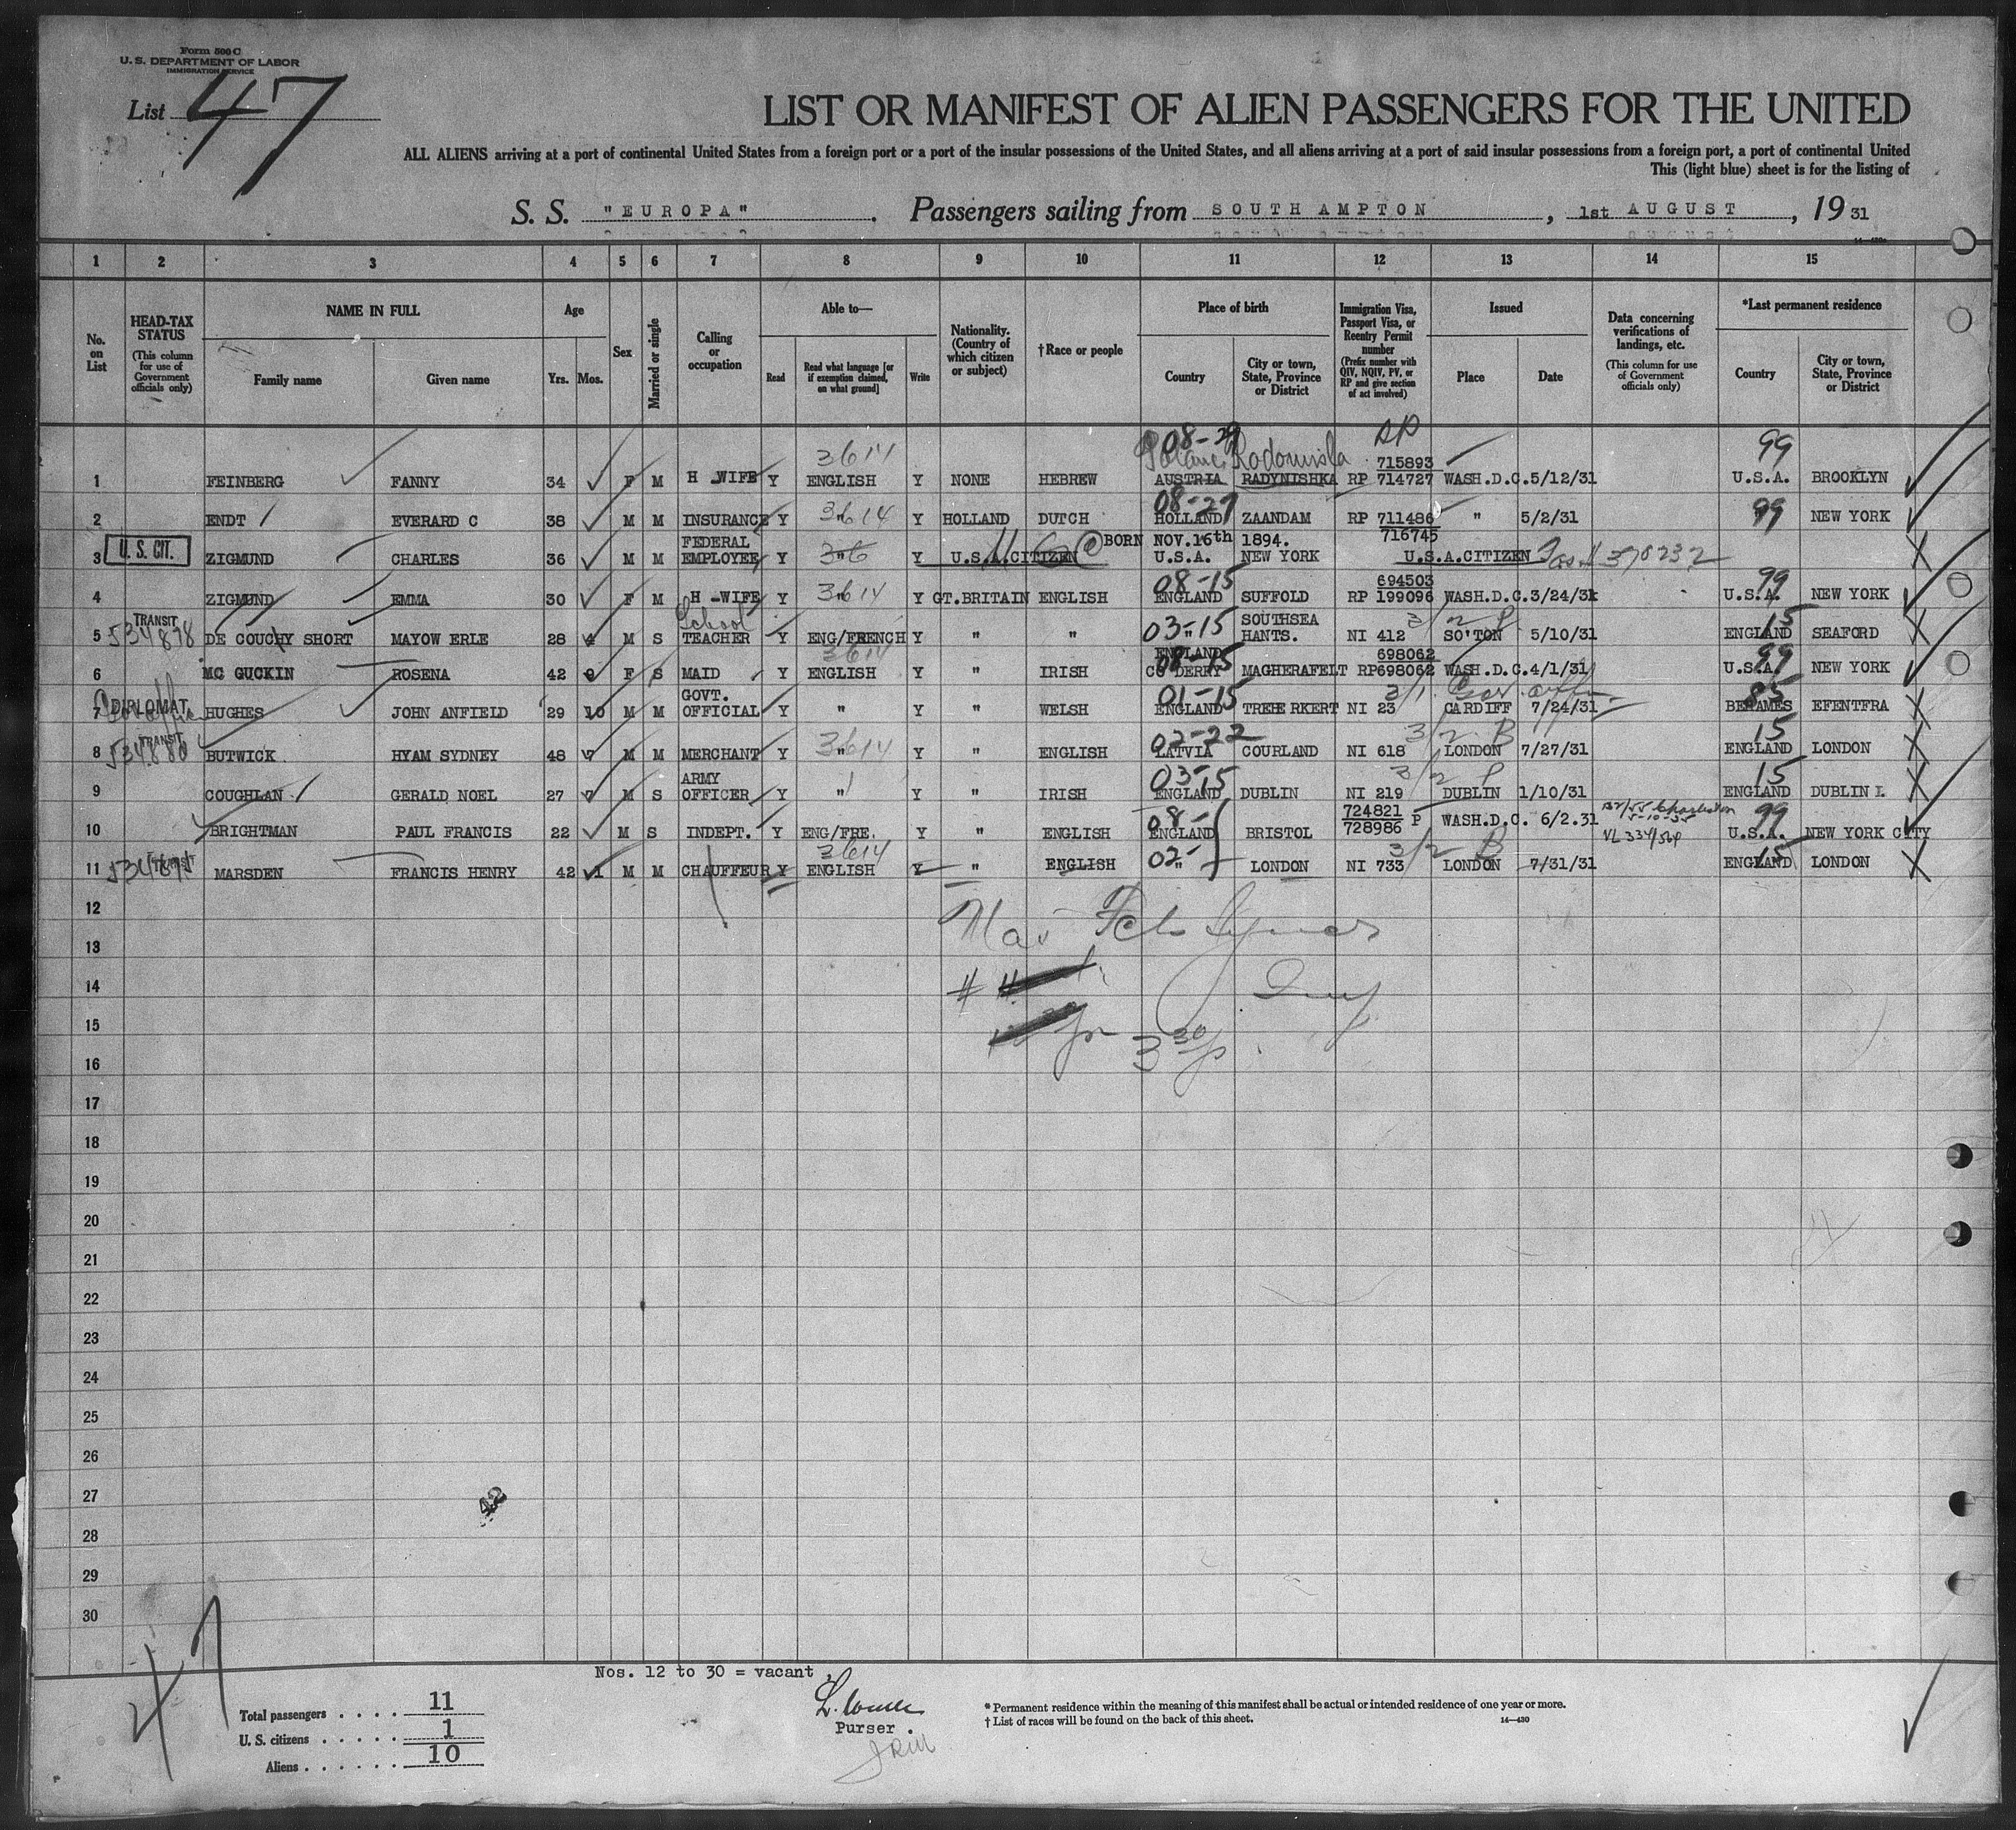 Form 500 C
U. S. DEPARTMENT OF LABOR
IMMIGRATION SERVICE
List 47
LIST OR MANIFEST OF ALIEN PASSENGERS FOR THE UNITED
ALL ALIENS arriving at a port of continental United States from a foreign port or a port of the insular possessions of the United States, and all aliens arriving at a port of said insular possessions from a foreign port, a port of continental United
This (light blue) sheet is for the listing of
S. S. "EUROPA", Passengers sailing from SOUTHAMPTON, 1st AUGUST, 19 31
1 2 3 4 5 6 7 8 9 10 11 12 13 14 15
No. on List
HEAD-TAX STATUS (This column for use of Government officials only)
NAME IN FULL
Family name Given name
Age
Yrs. Mos.
Sex
Married or single
Calling or occupation
Able to—
Read Read what language [or if exemption claimed, on what ground] Write
Nationality. (Country of which citizen or subject)
†Race or people
Place of birth
Country City or town, State, Province or District
Immigration Visa, Passport Visa, or Reentry Permit number (Prefix number with QIV, NQIV, PV, or RP and give section of act involved)
Issued
Place Date
Data concerning verifications of landings, etc. (This column for use of Government officials only)
*Last permanent residence
Country City or town, State, Province or District
3614 08-29 RP 715893 99
1 FEINBERG FANNY 34 F M H WIFE Y ENGLISH Y NONE HEBREW AUSTRIA RADYNISHKA RP 714727 WASH.D.C. 5/12/31 U.S.A. BROOKLYN
3614 08-27 99
2 ENDT EVERARD C 38 M M INSURANCE Y " Y HOLLAND DUTCH HOLLAND ZAANDAM RP 711486 " 5/2/31 " NEW YORK
716745
U. S. CIT. FEDERAL BORN NOV.16th 1894.
3 ZIGMUND CHARLES 36 M M EMPLOYEE Y " Y U.S.A.CITIZEN U.S.A. NEW YORK U.S.A.CITIZEN 370232
3614 08-15 694503 99
4 ZIGMUND EMMA 30 F M H-WIFE Y " Y GT.BRITAIN ENGLISH ENGLAND SUFFOLD RP 199096 WASH.D.C. 3/24/31 U.S.A. NEW YORK
TRANSIT 534878 School 03-15 SOUTHSEA 3/2 P 15
5 DE COUCHY SHORT MAYOW ERLE 28 4 M S TEACHER Y ENG/FRENCH Y " " " HANTS. NI 412 SO'TON 5/10/31 ENGLAND SEAFORD
3614 ENGLAND 08-15 698062 99
6 MC GUCKIN ROSENA 42 9 F S MAID Y ENGLISH Y " IRISH CO DERRY MAGHERAFELT RP698062 WASH.D.C. 4/1/31 U.S.A. NEW YORK
DIPLOMAT GOVT. 01-15 3/1 85
7 HUGHES JOHN ANFIELD 29 10 M M OFFICIAL Y " Y " WELSH ENGLAND TREHE RKERT NI 23 CARDIFF 7/24/31 BEHAMES EFENTFRA
TRANSIT 534880 3614 02-22 3/2 B 15
8 BUTWICK HYAM SYDNEY 48 7 M M MERCHANT Y " Y " ENGLISH LATVIA COURLAND NI 618 LONDON 7/27/31 ENGLAND LONDON
ARMY 03-15 3/2 P 15
9 COUGHLAN GERALD NOEL 27 7 M S OFFICER Y " Y " IRISH ENGLAND DUBLIN NI 219 DUBLIN 1/10/31 ENGLAND DUBLIN I.
08- 724821 P 99
10 BRIGHTMAN PAUL FRANCIS 22 M S INDEPT. Y ENG/FRE. Y " ENGLISH ENGLAND BRISTOL 728986 WASH.D.C. 6/2.31 U.S.A. NEW YORK CITY
TRANSIT 3614 02- 3/2 B 15
11 MARSDEN FRANCIS HENRY 42 1 M M CHAUFFEUR Y ENGLISH Y " ENGLISH " LONDON NI 733 LONDON 7/31/31 ENGLAND LONDON
12
13
14
15
3 30 p
16
17
18
19
20
21
22
23
24
25
26
27
42
28
29
30
47
Nos. 12 to 30 = vacant
Total passengers . . . . 11
U. S. citizens . . . . . 1
Aliens . . . . . . 10
Purser.
* Permanent residence within the meaning of this manifest shall be actual or intended residence of one year or more.
† List of races will be found on the back of this sheet.
14—430